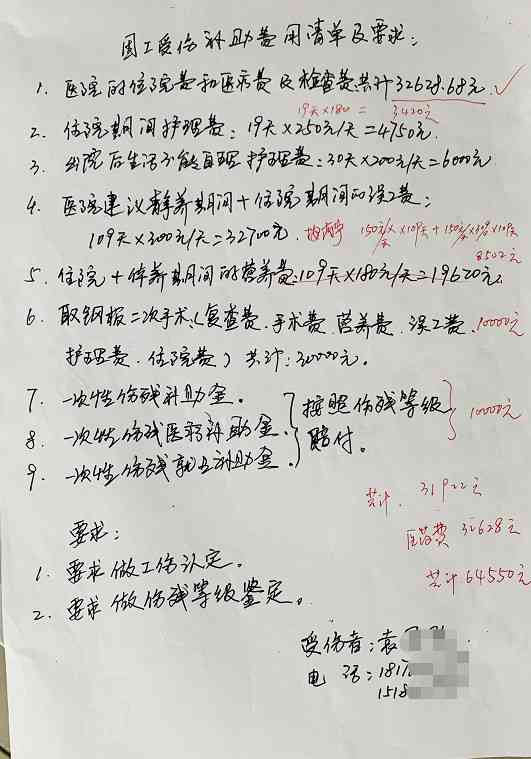 因工受伤补助费用清单及要求：
1. 医院的住院费和医疗费及检查费共计32628.68元 ✓
19天×180 = 3420元
2. 住院期间护理费：19天×250元/天=4750元.
3. 出院后生活不能自理护理费：30天×200元/天=6000元
4. 医院建议静养期间+住院期间的误工费：
109天×300元/天=32700元.
150元/天×109天+150元/天×
8502元
5. 住院+停养期间的营养费：109天×180元/天=19620元.
6. 取钢板二次手术（复查费.手术费.营养费.误工费. 10000元
护理费.住院费）共计：30000元.
7. 一次性伤残补助金.
8. 一次性伤残医疗补助金. 按照伤残等级 10000元
赔付.
9. 一次性伤残就业补助金.
共计. 31922元
医药费 32628元
共计64550元
要求：
1. 要求做工伤认定.
2. 要求做伤残等级鉴定.
受伤者：袁
电 话：1817
1518